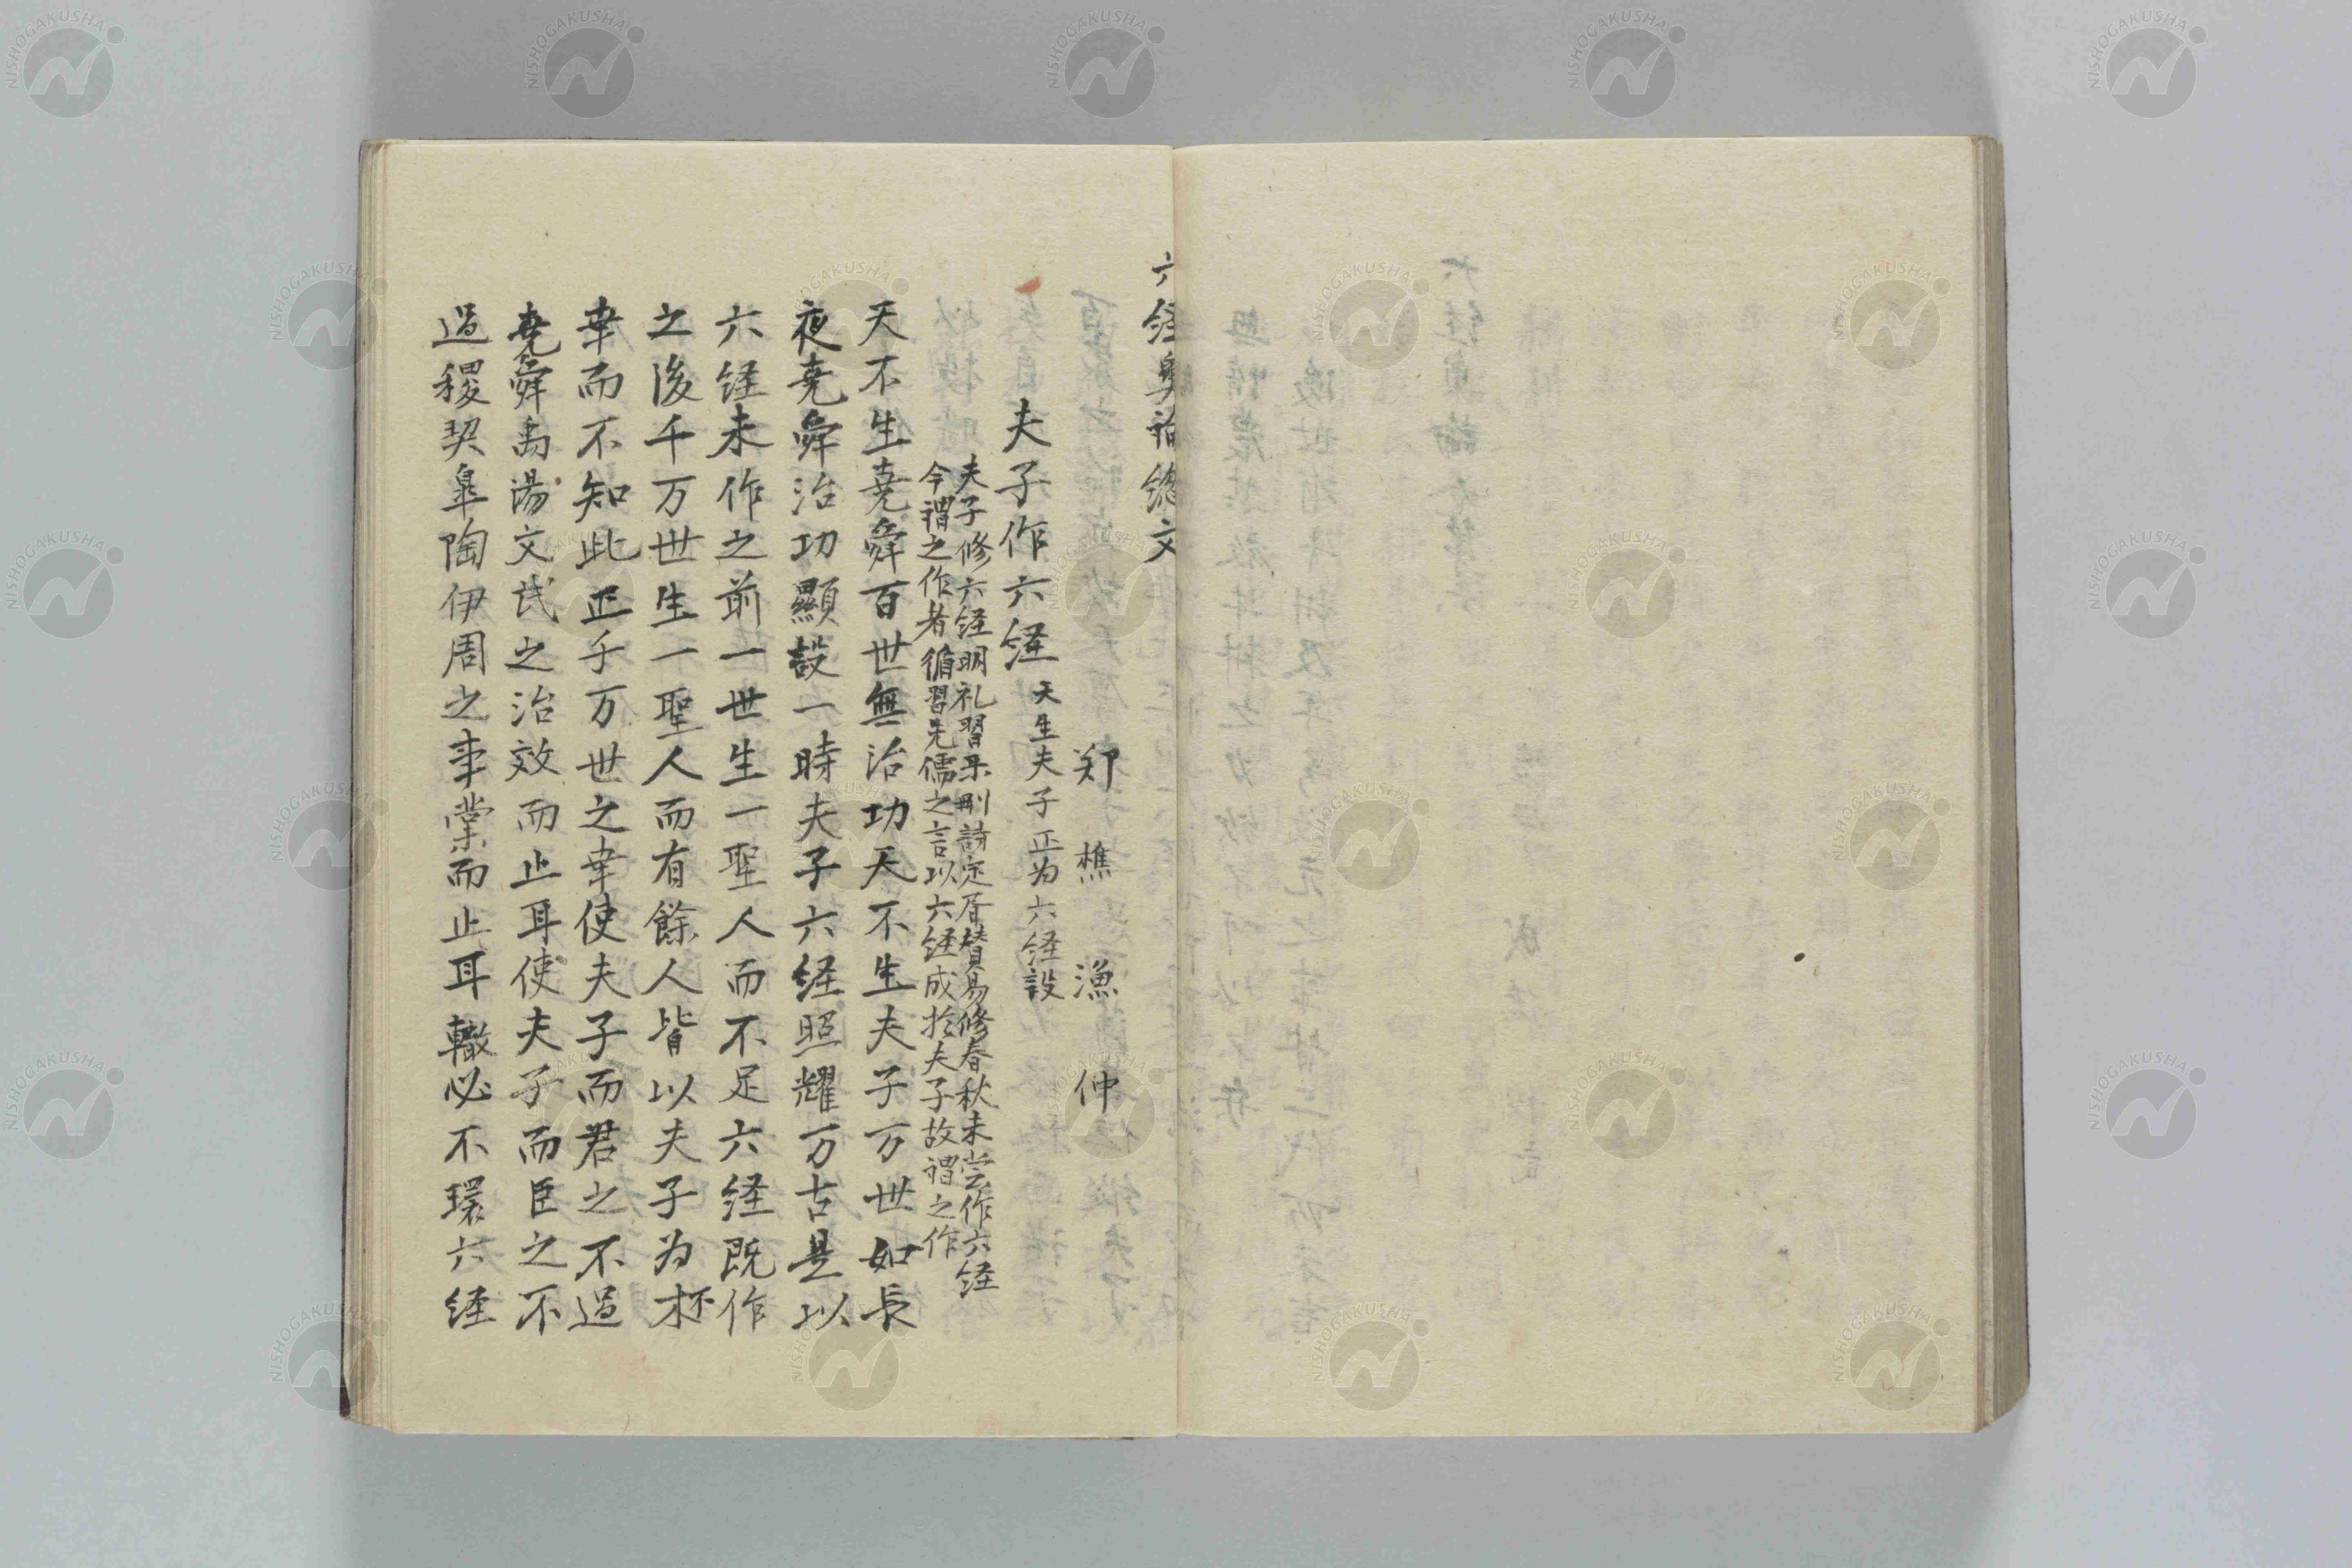 六経奥論総文
郑樵漁仲
夫子作六経 天生夫子正为六経設
夫子修六経明礼習乐刪詩定厝賛易修春秋未尝作六経
今謂之作者循習先儒之言以六経成於夫子故謂之作
天不生堯舜百世無治功天不生夫子万世如長
夜堯舜治功顯設一時夫子六経照耀万古是以
六経未作之前一世生一聖人而不足六経既作
之後千万世生一聖人而有餘人皆以夫子为杯
幸而不知此正千万世之幸使夫子而君之不過
堯舜禹湯文武之治效而止耳使夫子而臣之不
過稷契皐陶伊周之事業而止耳轍必不環六経
NISHOGAKUSHA